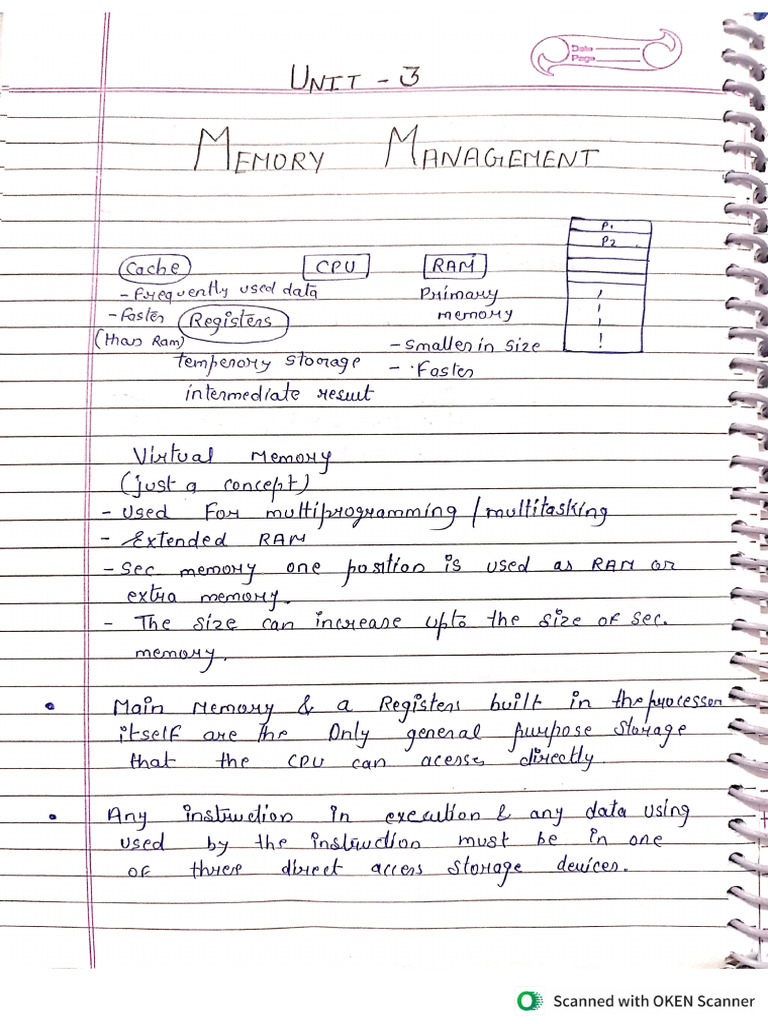 Date
Page
UNIT - 3
MEMORY MANAGEMENT
P1
P2
Cache
CPU
RAM
- Frequently used data
Primary
- Faster
Registers
memory
(than Ram)
- smaller in size
temperory storage
- Faster
intermediate result
Virtual Memory
(just a concept)
- Used For multiprogramming / multitasking
- Extended RAM
- Sec memory one position is used as RAM or
extra memory.
- The size can increase upto the size of sec.
memory.
• Main Memory & a Registers built in the processor
itself are the Only general purpose storage
that the CPU can acess directly
• Any instruction in execution & any data using
used by the instruction must be in one
of three direct access storage devices.
Scanned with OKEN Scanner